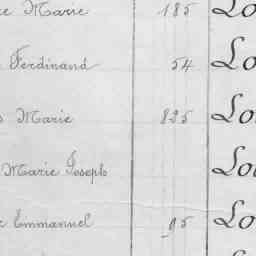 Marie 185 Lo
Ferdinand 54 Lo
Marie 825 Lo
Marie Joseph Lo
Emmanuel 95 Lo